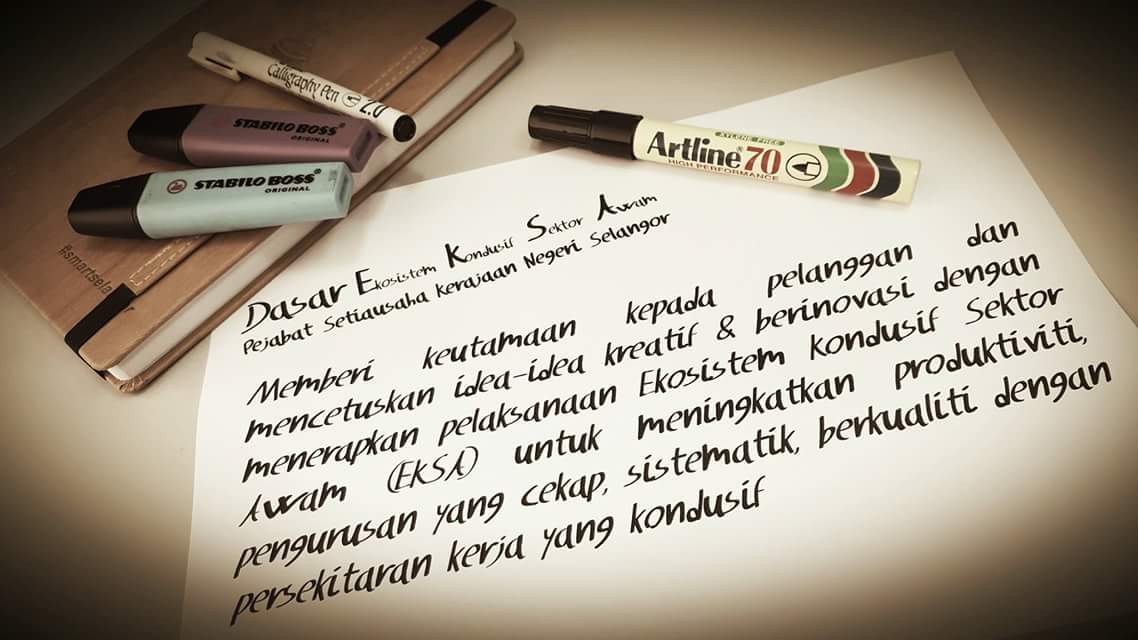 Calligraphy Pen 2.0
STABILO BOSS
ORIGINAL
STABILO BOSS
ORIGINAL
#smartsela
XYLENE FREE
Artline 70
HIGH PERFORMANCE
Dasar Ekosistem Kondusif Sektor Awam
Pejabat Setiausaha Kerajaan Negeri Selangor
Memberi keutamaan kepada pelanggan dan
mencetuskan idea-idea kreatif & berinovasi dengan
menerapkan pelaksanaan Ekosistem kondusif Sektor
Awam (EKSA) untuk meningkatkan produktiviti,
pengurusan yang cekap, sistematik, berkualiti dengan
persekitaran kerja yang kondusif